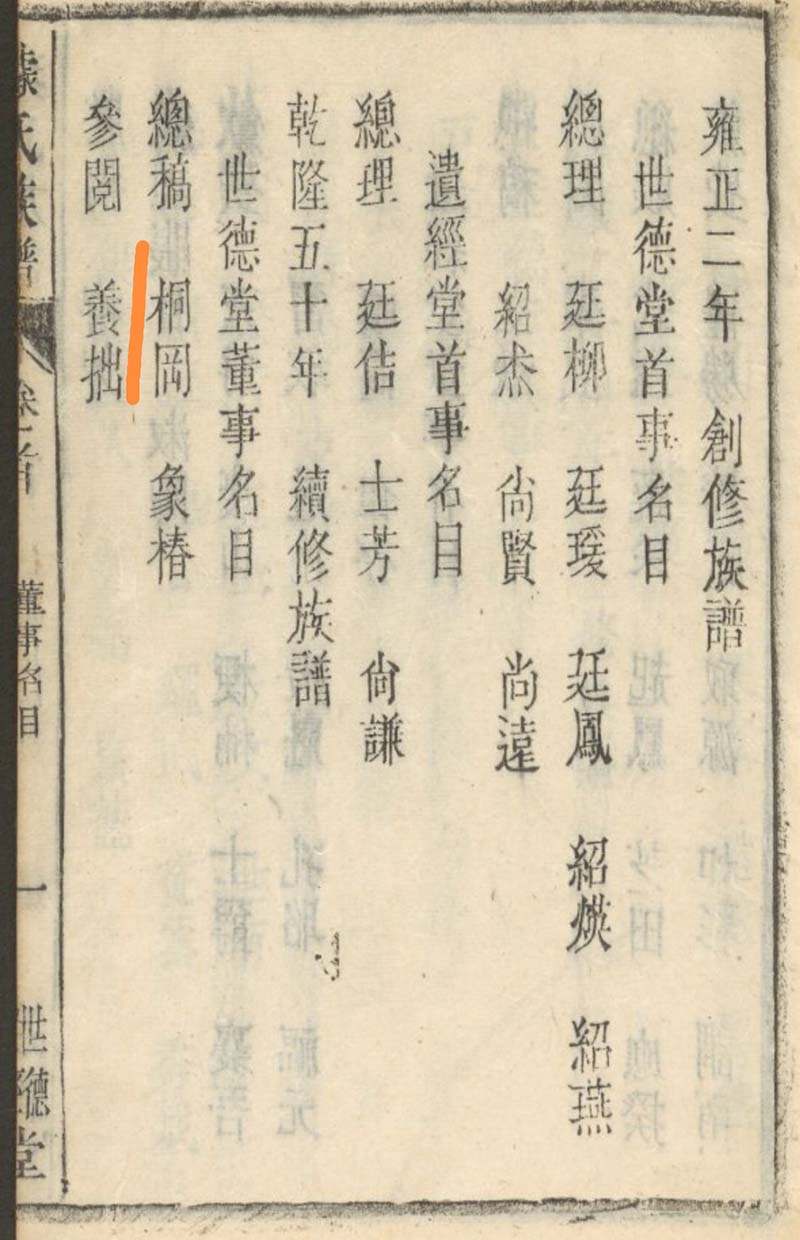 雍正二年 創修族譜
世德堂首事名目
總理 廷柳 廷瑗 廷鳳 紹煐 紹燕
紹杰 尚賢 尚遠
遺經堂首事名目
總理 廷佶 士芳 尙謙
乾隆五十年 續修族譜
世德堂董事名目
總稿 桐岡 象椿
參閱 養拙
氏族譜 卷首 董事名目 一 世德堂